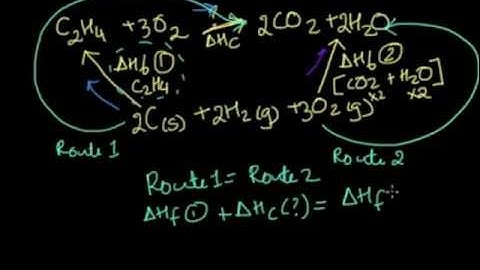 C₂H₄ + 3O₂ ΔHc 2CO₂ + 2H₂O
ΔHf ① ΔHf ②
C₂H₄ [CO₂ + H₂O]
×2 ×2
2C(s) + 2H₂(g) + 3O₂(g)
Route 1 Route 2
Route 1 = Route 2
ΔHf ① + ΔHc(?) = ΔHf